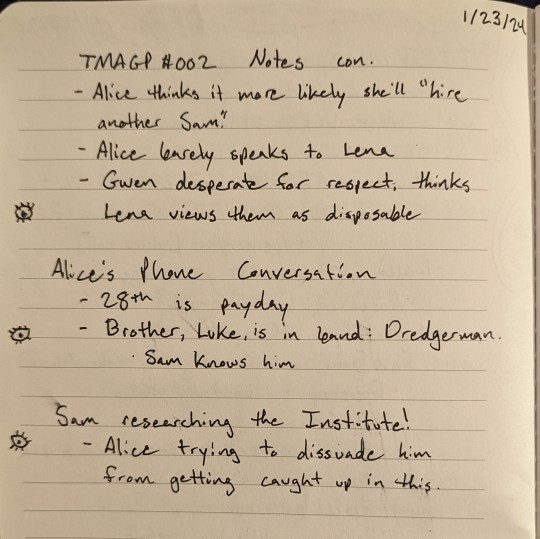 1/23/24
TMAGP #002 Notes con.
- Alice thinks it more likely she'll "hire
another Sam."
- Alice barely speaks to Lena
- Gwen desperate for respect, thinks
Lena views them as disposable
Alice's Phone Conversation
- 28th is payday
- Brother, Luke, is in band: Dredgerman.
· Sam knows him
Sam researching the Institute!
- Alice trying to dissuade him
from getting caught up in this.